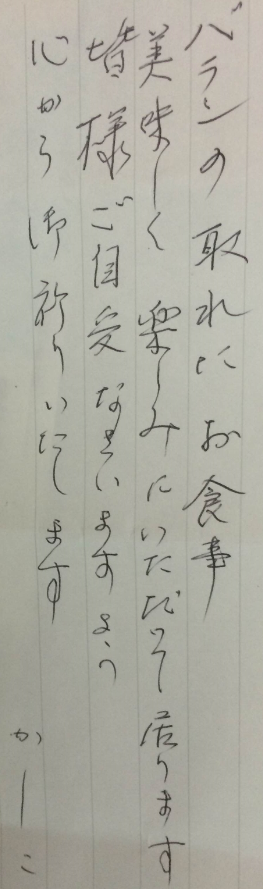 バランの取れにお食事
美味しく楽しみにいただいて居ります
皆様ご自愛なさいますよう
心から御祈りいたします
かしこ